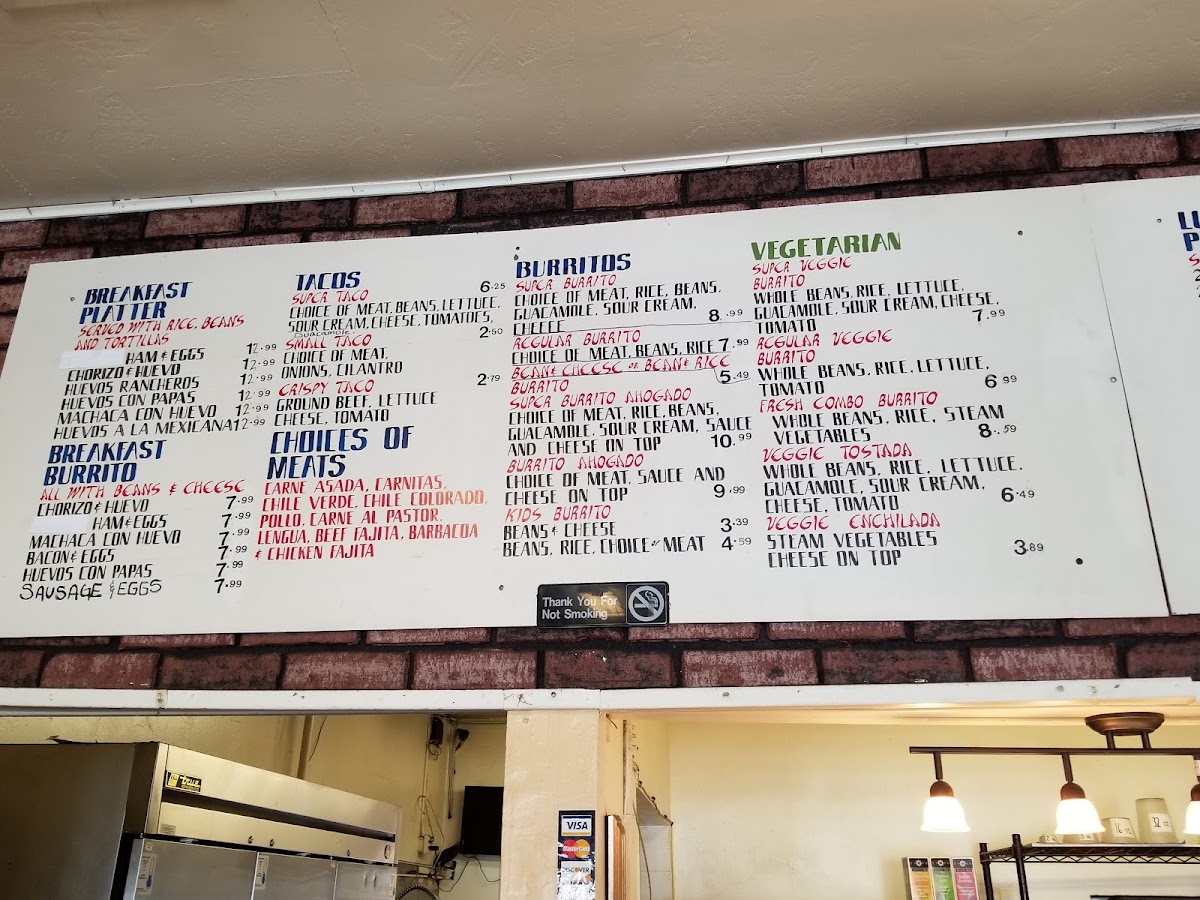 BREAKFAST
PLATTER
SERVED WITH RICE, BEANS
AND TORTILLAS
HAM & EGGS 12.99
CHORIZO & HUEVO 12.99
HUEVOS RANCHEROS 12.99
HUEVOS CON PAPAS 12.99
MACHACA CON HUEVO 12.99
HUEVOS A LA MEXICANA 12.99
BREAKFAST
BURRITO
ALL WITH BEANS & CHEESE
CHORIZO & HUEVO 7.99
HAM & EGGS 7.99
MACHACA CON HUEVO 7.99
BACON & EGGS 7.99
HUEVOS CON PAPAS 7.99
SAUSAGE & EGGS 7.99
TACOS
SUPER TACO 6.25
CHOICE OF MEAT, BEANS, LETTUCE,
SOUR CREAM, CHEESE, TOMATOES,
GUACAMOLE
SMALL TACO 2.50
CHOICE OF MEAT,
ONIONS, CILANTRO
CRISPY TACO 2.79
GROUND BEEF, LETTUCE
CHEESE, TOMATO
CHOICES OF
MEATS
CARNE ASADA, CARNITAS,
CHILE VERDE, CHILE COLORADO,
POLLO, CARNE AL PASTOR,
LENGUA, BEEF FAJITA, BARBACOA
& CHICKEN FAJITA
BURRITOS
SUPER BURRITO
CHOICE OF MEAT, RICE, BEANS,
GUACAMOLE, SOUR CREAM,
CHEECE 8.99
REGULAR BURRITO
CHOICE OF MEAT, BEANS, RICE 7.99
BEAN & CHEESE OR BEAN & RICE
BURRITO 5.49
SUPER BURRITO AHOGADO
CHOICE OF MEAT, RICE, BEANS,
GUACAMOLE, SOUR CREAM, SAUCE
AND CHEESE ON TOP 10.99
BURRITO AHOGADO
CHOICE OF MEAT, SAUCE AND
CHEESE ON TOP 9.99
KIDS BURRITO
BEANS & CHEESE 3.39
BEANS, RICE, CHOICE OF MEAT 4.59
VEGETARIAN
SUPER VEGGIE
BURRITO
WHOLE BEANS, RICE, LETTUCE,
GUACAMOLE, SOUR CREAM, CHEESE,
TOMATO 7.99
REGULAR VEGGIE
BURRITO
WHOLE BEANS, RICE, LETTUCE,
TOMATO 6.99
FRESH COMBO BURRITO
WHOLE BEANS, RICE, STEAM
VEGETABLES 8.59
VEGGIE TOSTADA
WHOLE BEANS, RICE, LETTUCE,
GUACAMOLE, SOUR CREAM,
CHEESE, TOMATO 6.49
VEGGIE ENCHILADA
STEAM VEGETABLES
CHEESE ON TOP 3.89
Thank You For
Not Smoking
VISA
MasterCard
DISCOVER
16
32